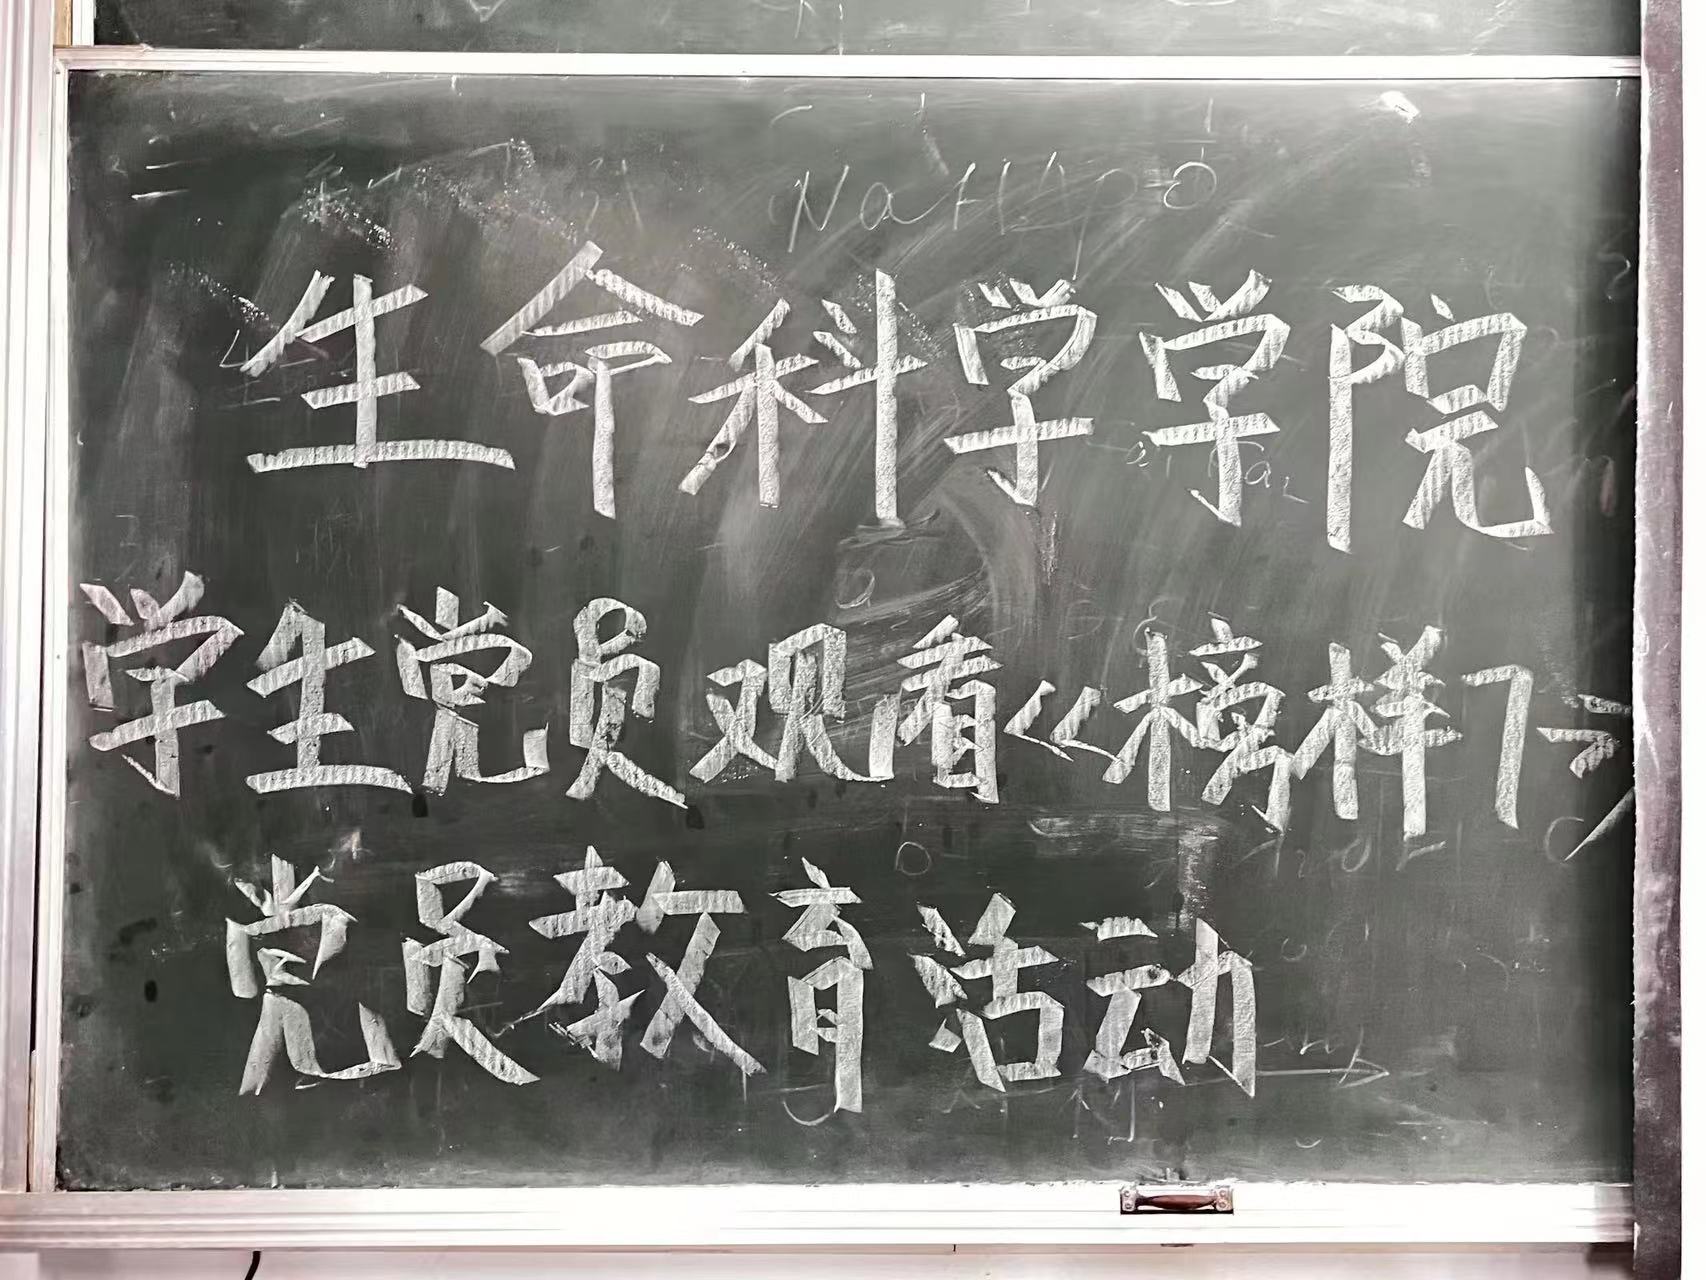 生命科学学院
学生党员观看《榜样7》
党员教育活动